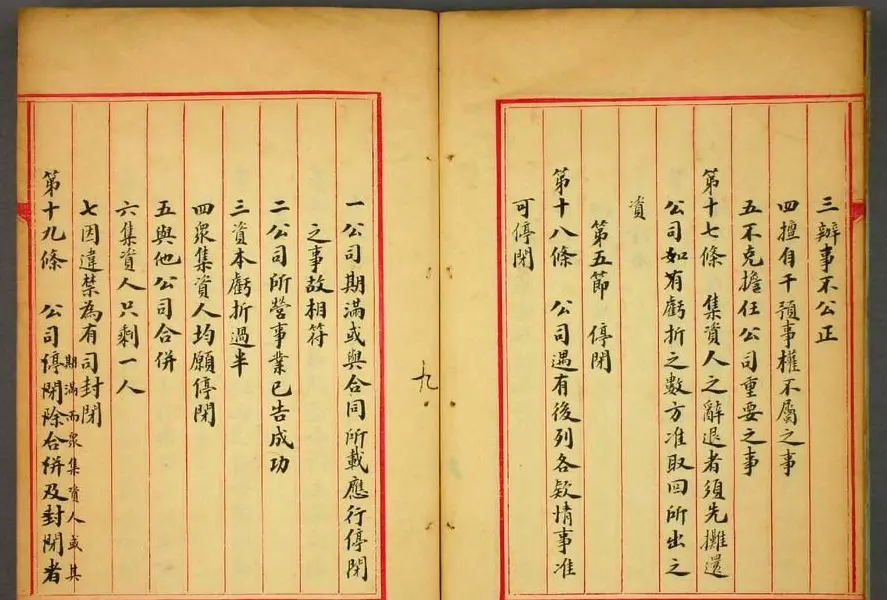 三辦事不公正
四擅自干預事權不屬之事
五不克擔任公司重要之事
第十七條 集資人之辭退者須先攤還
公司如有虧折之數方准取回所出之
資
第五節 停閉
第十八條 公司遇有後列各欵情事准
可停閉
九
一公司期滿或與合同所載應行停閉
之事故相符
二公司所營事業已告成功
三資本虧折過半
四眾集資人均願停閉
五與他公司合併
六集資人只剩一人
七因違禁為有司封閉
期滿而眾集資人或其
第十九條 公司停閉除合併及封閉者